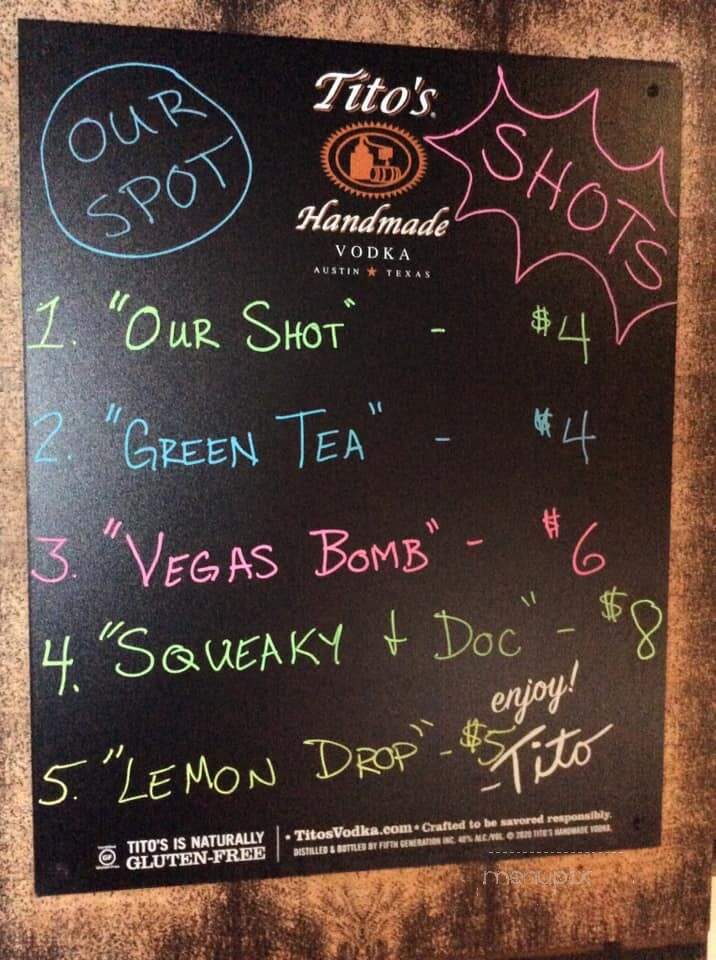 OUR
SPOT
Tito's
Handmade
VODKA
AUSTIN ★ TEXAS
SHOTS
1. "OUR SHOT" - $4
2. "GREEN TEA" - $4
3. "VEGAS BOMB" - $6
4. "SQUEAKY + DOC" - $8
5. "LEMON DROP" - $5
enjoy!
-Tito
GF
TITO'S IS NATURALLY
GLUTEN-FREE
• TitosVodka.com • Crafted to be savored responsibly.
DISTILLED & BOTTLED BY FIFTH GENERATION INC. 40% ALC./VOL. © 2020 TITO'S HANDMADE VODKA.
menupix